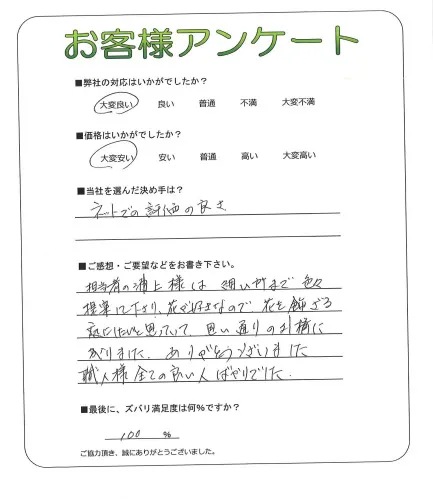 お客様アンケート
■弊社の対応はいかがでしたか？
大変良い 良い 普通 不満 大変不満
■価格はいかがでしたか？
大変安い 安い 普通 高い 大変高い
■当社を選んだ決め手は？
ネットでの評価の良さ
■ご感想・ご要望などをお書き下さい。
担当者の浦上様は 細い所まで 色々
提案して下さり、花が好きなので 花を飾る
にしたいと思っていて 思い通りのお
になりました。ありがとうございました
職人様全ての良い人ばかりでした。
■最後に、ズバリ満足度は何％ですか？
100 %
ご協力頂き、誠にありがとうございました。